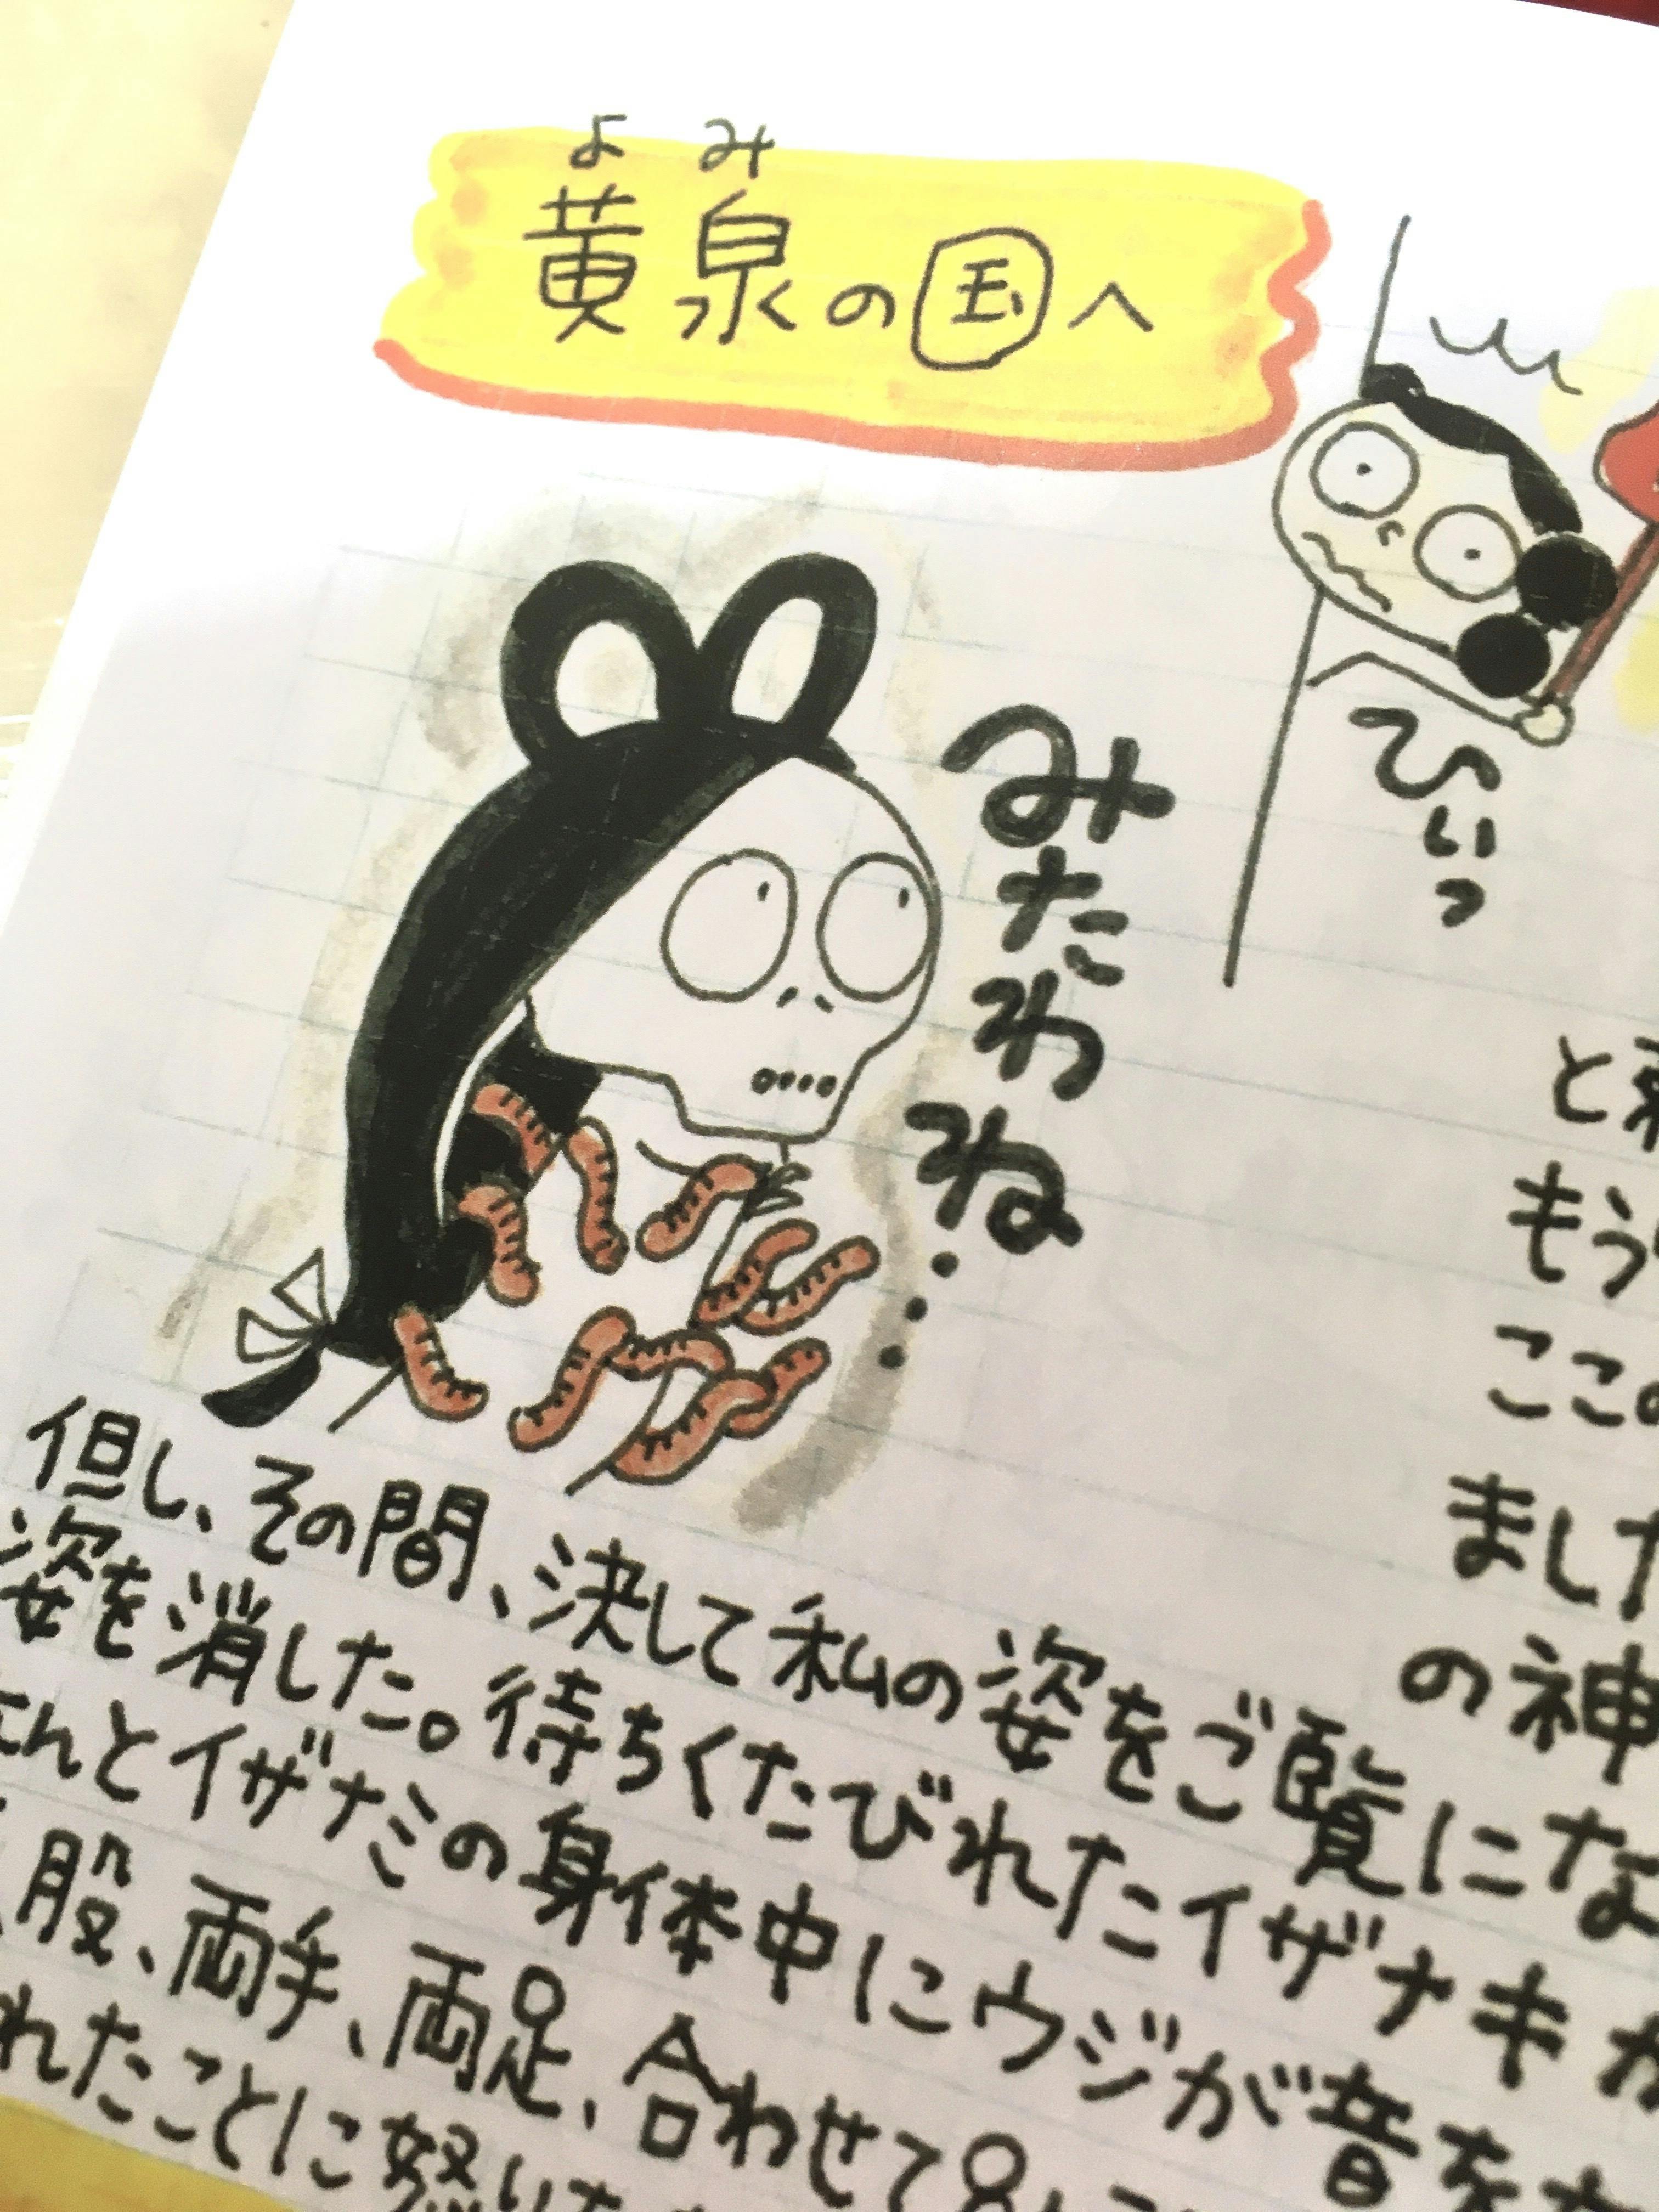 よみ
黄泉の国へ
ひいっ
みたわね...
と
もう
ここの
ました
の神
但し、その間、決して私の姿をご覧にな
姿を消した。待ちくたびれたイザナキが
なんとイザナミの身体中にウジが音を
股、両手、両足、合わせて
れたことに怒り